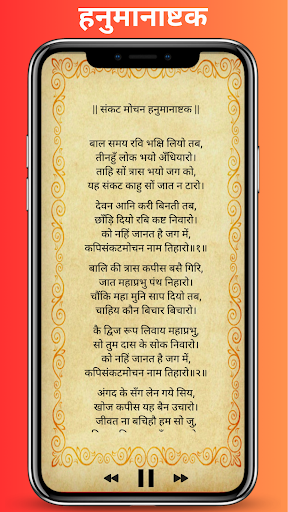 हनुमानाष्टक
|| संकट मोचन हनुमानाष्टक ||
बाल समय रवि भक्षि लियो तब,
तीनहुँ लोक भयो अँधियारो।
ताहि सों त्रास भयो जग को,
यह संकट काहु सों जात न टारो।
देवन आनि करी बिनती तब,
छाँड़ि दियो रबि कष्ट निवारो।
को नहिं जानत है जग में,
कपिसंकटमोचन नाम तिहारो॥१॥
बालि की त्रास कपीस बसै गिरि,
जात महाप्रभु पंथ निहारो।
चौंकि महा मुनि साप दियो तब,
चाहिय कौन बिचार बिचारो।
कै द्विज रूप लिवाय महाप्रभु,
सो तुम दास के सोक निवारो।
को नहिं जानत है जग में,
कपिसंकटमोचन नाम तिहारो॥२॥
अंगद के सँग लेन गये सिय,
खोज कपीस यह बैन उचारो।
जीवत ना बचिहौ हम सो जु,